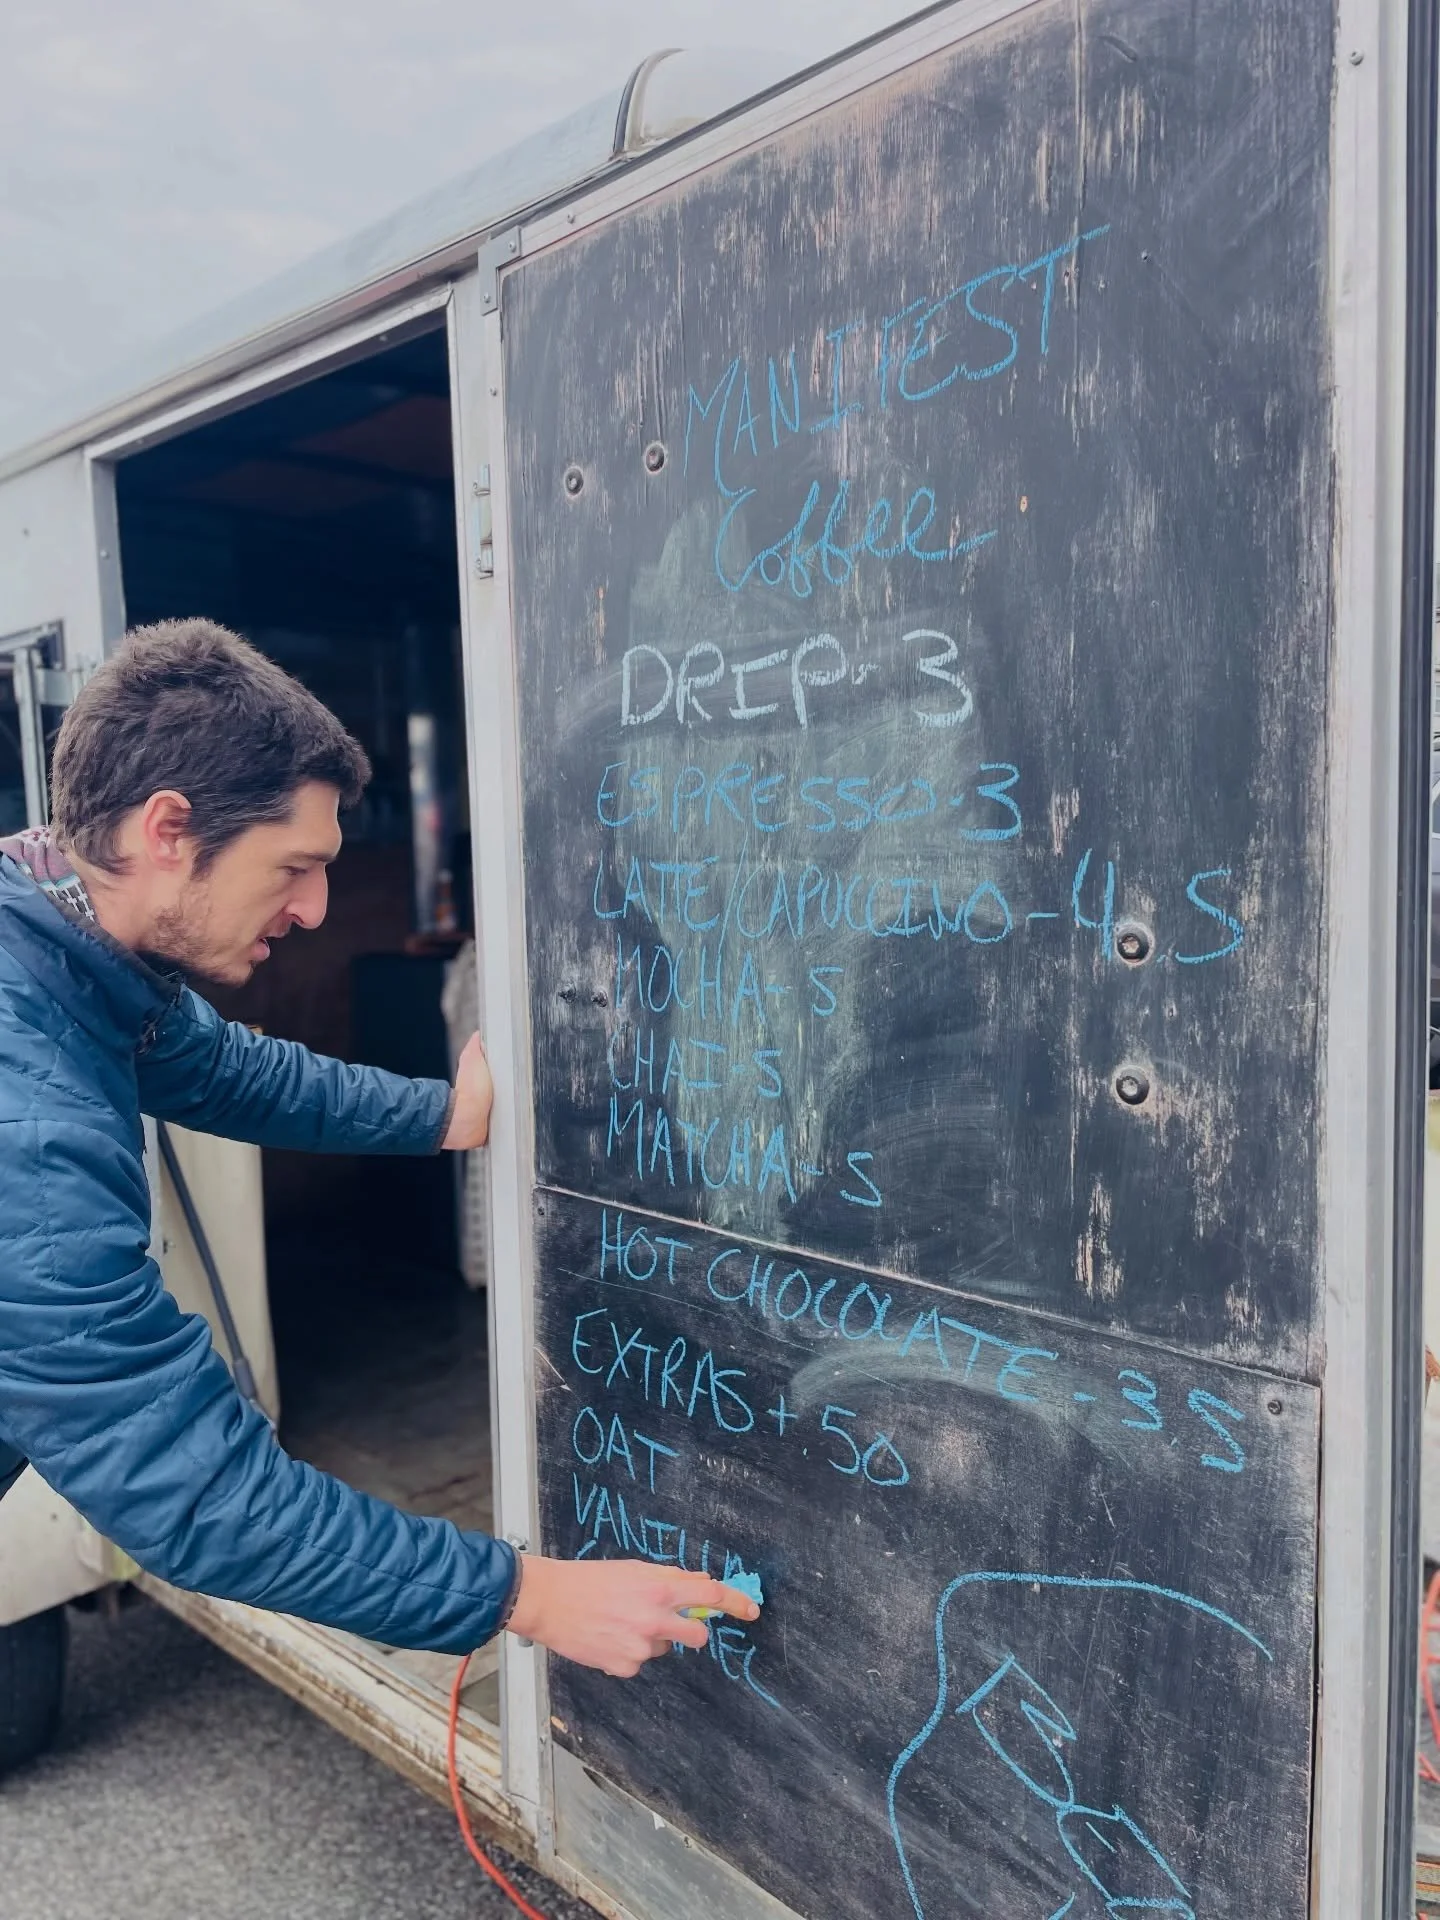 MANIFEST
Coffee
DRIP- 3
ESPRESSO-3
LATTE/CAPUCCINO-4.5
MOCHA-5
CHAI-5
MATCHA-5
HOT CHOCOLATE-3.5
EXTRAS+.50
OAT
VANILLA